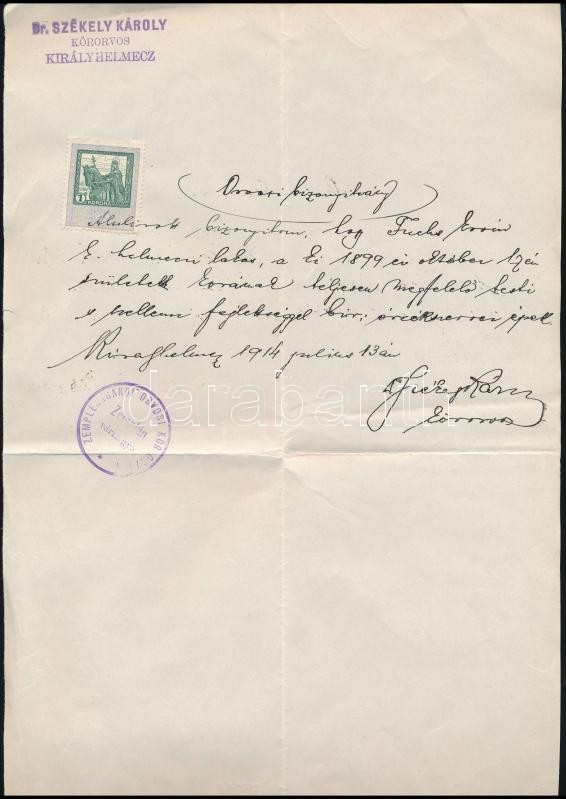 Dr. SZÉKELY KÁROLY
KÖRORVOS
KIRÁLYHELMECZ
1 KORONA
Orvosi bizonyitvány
Alulirott bizonyitom, hogy Fuchs Ervin
k. helmeci lakos, a ki 1899 év október 12én
született korának teljesen megfelelő testi
s szellemi fejlettséggel bir; érzékszervei épek
Királyhelmec 1914 julius 13án
Dr Székely Károly
körorvos
ZEMPLÉN
Zemplén
vármegye
darabanth.com